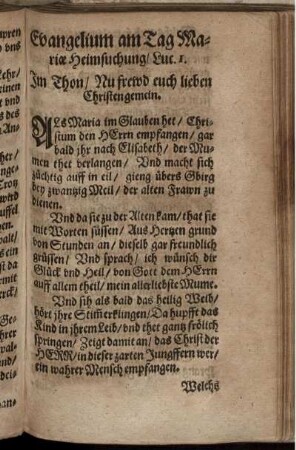 Evangelium am Tag Ma-
riæ Heimsuchung / Luc. 1.
Im Thon / Nu frewd euch lieben
Christengemein.
ALs Maria im Glauben het / Chri-
stum den HErrn empfangen / gar
bald zhr nach Elisabeth / der Mu-
men thet verlangen / Vnd macht sich
züchtig auff in eil / gieng übers Gbirg
bey zwantzig Meil / der alten Frawn zu
dienen.
Vnd da sie zu der Alten kam / that sie
mit Worten süssen / Aus Hertzen grund
von Stunden an / dieselb gar freundlich
grüssen / Vnd sprach / ich wünsch dir
Glück vnd Heil / von Gott dem HErrn
auff allem theil / mein allerliebste Mume.
Vnd sih als bald das heilig Weib /
hört ihre Stim erklingen / Da hupfft das
Kind in ihrem Leib / vnd thet gantz frölich
springen / Zeigt damit an / das Christ der
HERR / in dieser zarten Jungffern wer /
ein wahrer Mensch empfangen.
Welchs